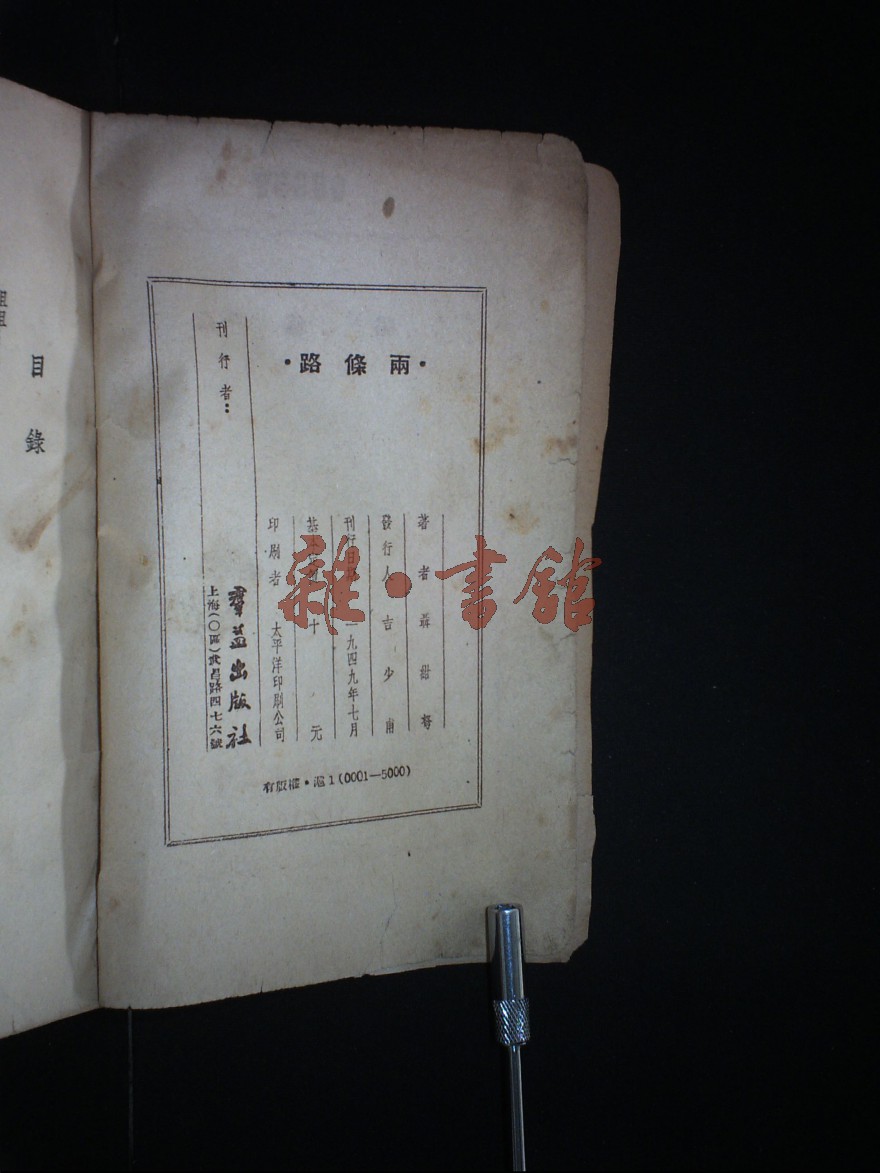 ·兩條路·
著者聶紺弩
發行人吉少甫
刊行日一九四九年七月
基十元
印刷者 太平洋印刷公司
刊行者：
羣益出版社
上海(〇區)武昌路四七六號
有版權·滬1(0001—5000)
目錄
雜·書館